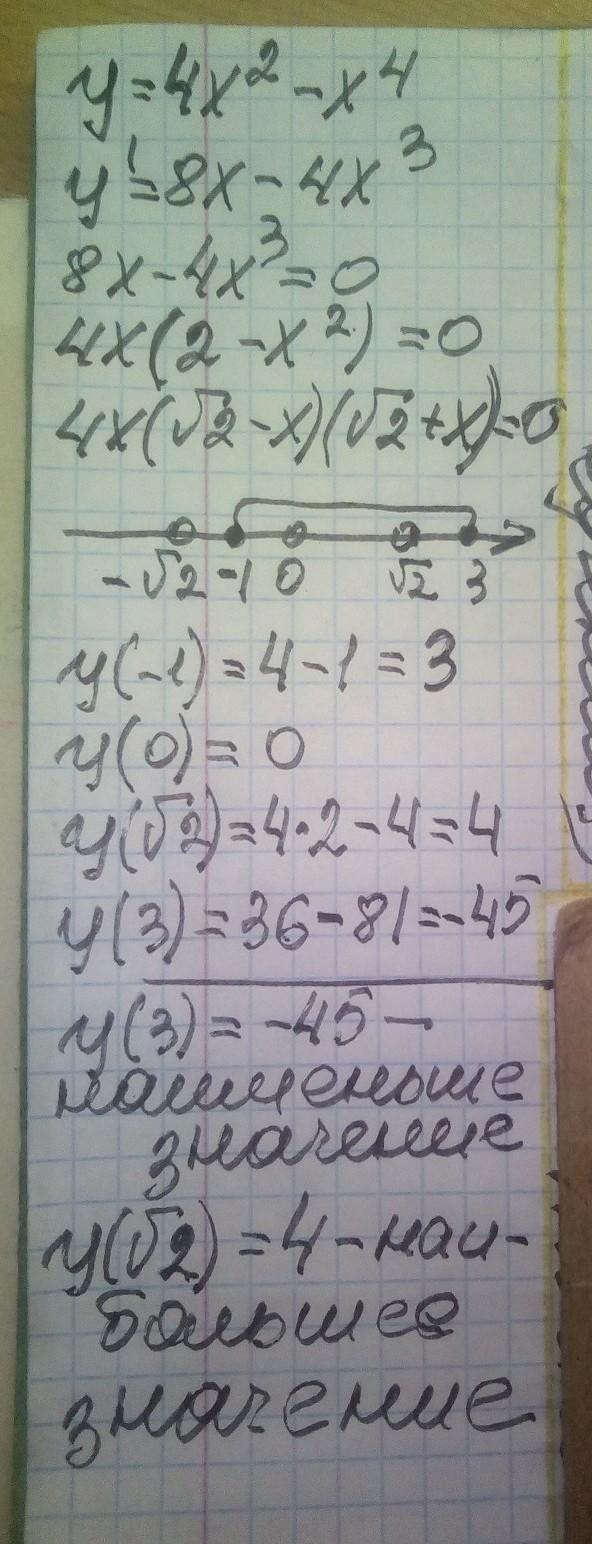 y=4x²-x⁴
y'=8x-4x³
8x-4x³=0
4x(2-x²)=0
4x(√2-x)(√2+x)=0
-√2 -1 0 √2 3
y(-1)=4-1=3
y(0)=0
y(√2)=4·2-4=4
y(3)=36-81=-45
y(3)=-45-
наименьше
значение
y(√2)=4-наи-
большее
значение